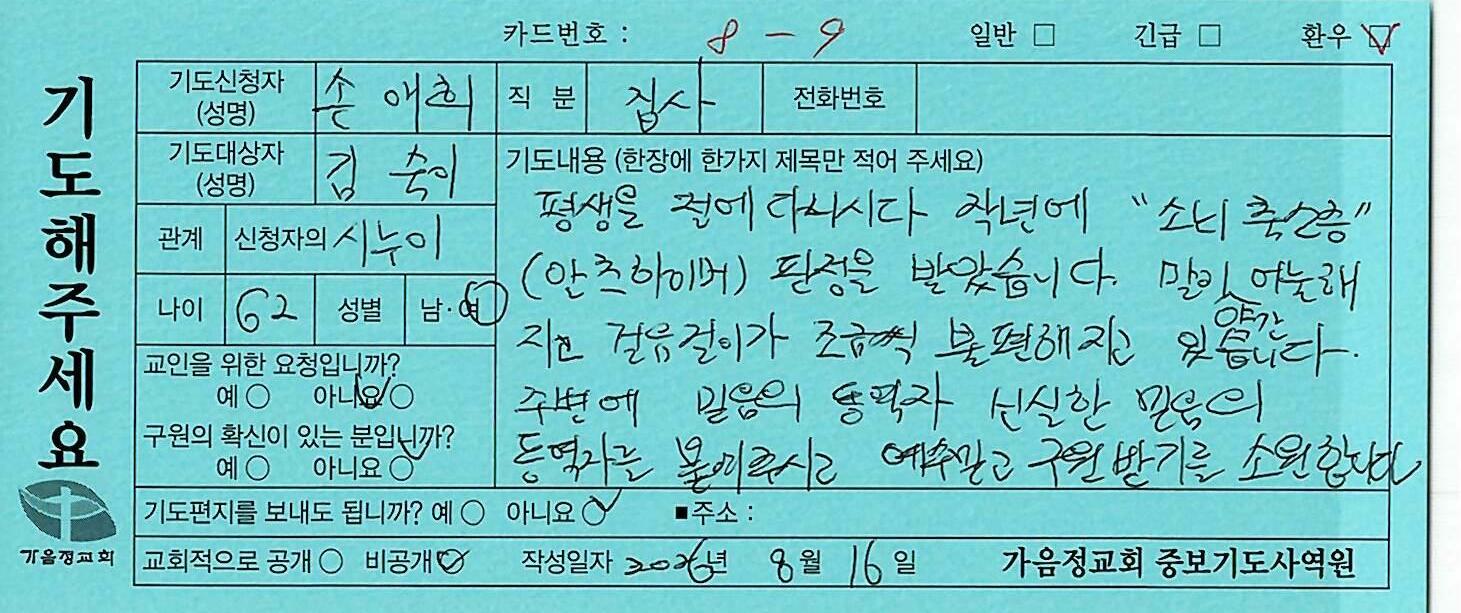 카드번호 : 8 - 9 일반 □ 긴급 □ 환우 ☑
기도해주세요
기도신청자 (성명) 손애희 직 분 집사 전화번호
기도대상자 (성명) 김숙이
관계 신청자의 시누이
나이 62 성별 남·여
교인을 위한 요청입니까?
예 ○ 아니요 ○
구원의 확신이 있는 분입니까?
예 ○ 아니요 ○
기도내용 (한장에 한가지 제목만 적어 주세요)
평생을 절에 다니시다 작년에 "소뇌 축소증"
(알츠하이머) 판정을 받았습니다. 말이 어눌해
지고 걸음걸이가 조금씩 약간 불편해지고 있습니다.
주변에 믿음의 동역자 신실한 믿음의
동역자를 붙여주시고 예수믿고 구원받기를 소원합니다
기도편지를 보내도 됩니까? 예 ○ 아니요 ○ ■주소 :
교회적으로 공개 ○ 비공개 ○ 작성일자 2026년 8월 16일 가음정교회 중보기도사역원
가음정교회